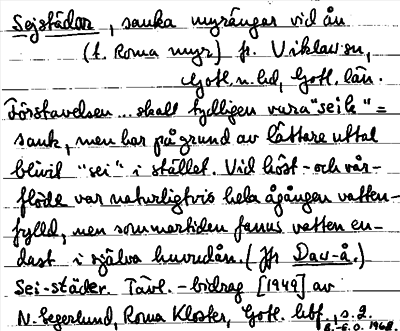 Sejstädar, sanka myränger vid ån
(t. Roma myr) fr. Viklau sn,
Gotl. n. hd, Gotl. län.
Förstavelsen... skall tydligen vara "seik" =
sank, men har på grund av lättare uttal
blivit "sei" i stället. Vid höst- och vår-
flöde var naturligtvis hela ågången vatten-
fylld, men sommartiden fanns vatten en-
dast i själva huvudån. (Jfr Dav-å.)
Sei-städer. Tävl.-bidrag [1949] av
N. Segerlund, Roma Kloster, Gotl. hbf., s. 2.
B.-E.O. 1968.